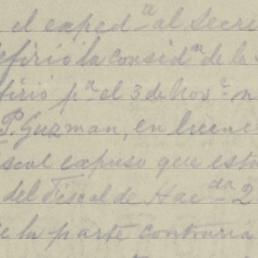 el exped.ta al Secre
efirió la consid.n de la S
firió p.a el 3 de Nov.e n
P. Guzman, en licenc
iscal expuso que esta
del Fiscal de Hac.da 2
e la parte contraria